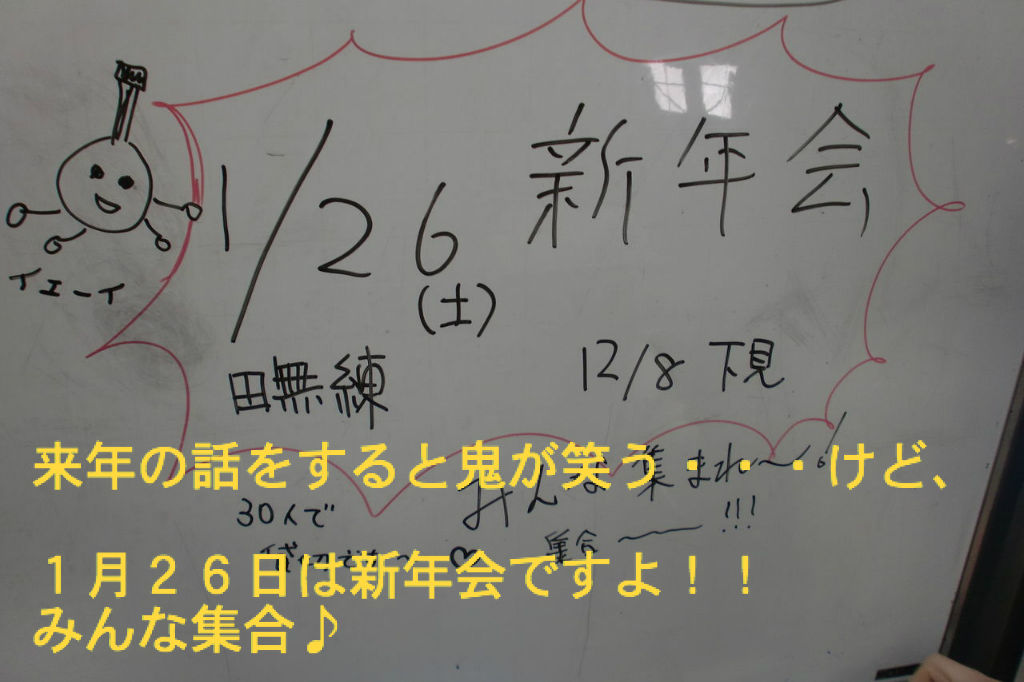 1/26 新年会
(土)
イエーイ
田無練
12/8 下見
来年の話をすると鬼が笑う・・・けど、
みんな集まれ〜!
30人で
集合〜!!!
1月26日は新年会ですよ!!
みんな集合♪